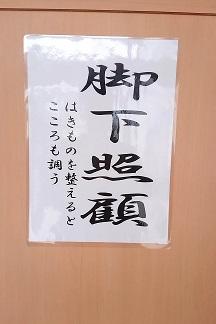 脚下照顧
はきものを整えると
こころも調う